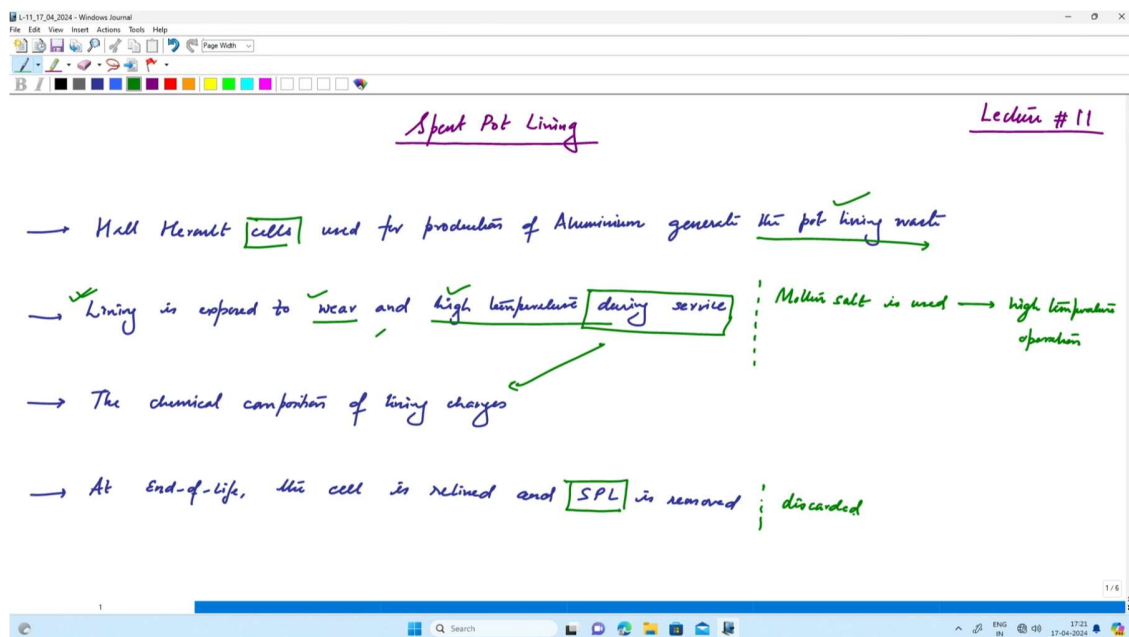 L-11_17_04_2024 - Windows Journal
File Edit View Insert Actions Tools Help
Page Width
B I
Spent Pot Lining
Lecture # 11
→ Hall Herault cells used for production of Aluminium generate the pot lining waste
→ Lining is exposed to wear and high temperature during service
Molten salt is used → high temperature
operation
→ The chemical composition of lining changes
→ At End-of-Life, the cell is relined and SPL is removed
discarded
1 / 6
1
Search
ENG
IN
17:21
17-04-2024